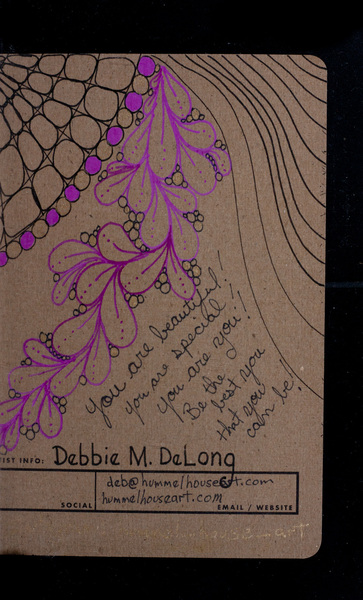 You are beautiful!
you are special!
You are you!
Be the
best you
that you
can be!
IST INFO: Debbie M. DeLong
deb@hummelhouseart.com
hummelhouseart.com
SOCIAL EMAIL / WEBSITE